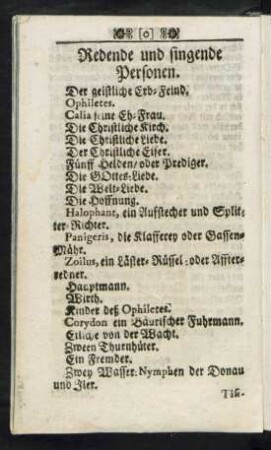 [0]
Redende und singende
Personen.
Der geistliche Erb-Feind.
Ophiletes.
Calia seine Eh-Frau.
Die Christliche Kirch.
Die Christliche Liebe.
Der Christliche Eifer.
Fünff Helden- oder Prediger.
Die GOttes-Liebe.
Die Welt-Liebe.
Die Hoffnung.
Halophant, ein Aufstecher und Split-
ter-Richter.
Panigeris, die Klafferey oder Gassen-
Mähr.
Zoilus, ein Läster-Rüssel- oder Affter-
redner.
Hauptmann.
Wirth.
Kinder deß Ophiletes.
Corydon ein Bäurischer Fuhrmann.
Etliche von der Wacht.
Zween Thurnhüter.
Ein Fremder.
Zwey Wasser-Nymphen der Donau
und Iler.
Tis-